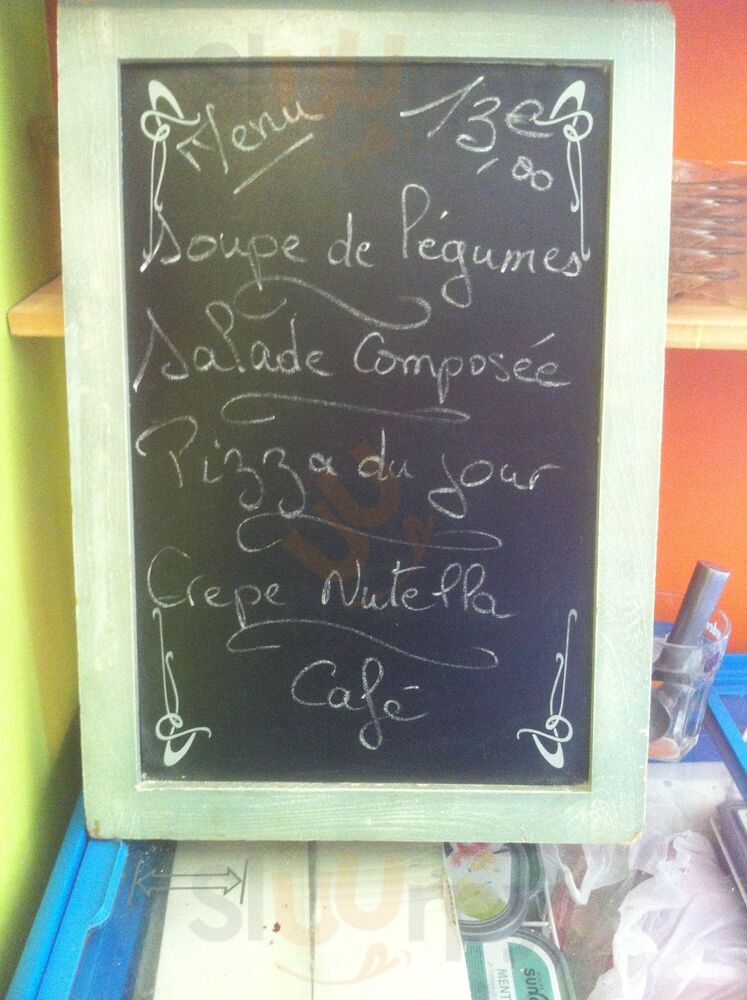 Menu 13€,00
Soupe de légumes
Salade Composée
Pizza du jour
Crepe Nutella
Café
MENT